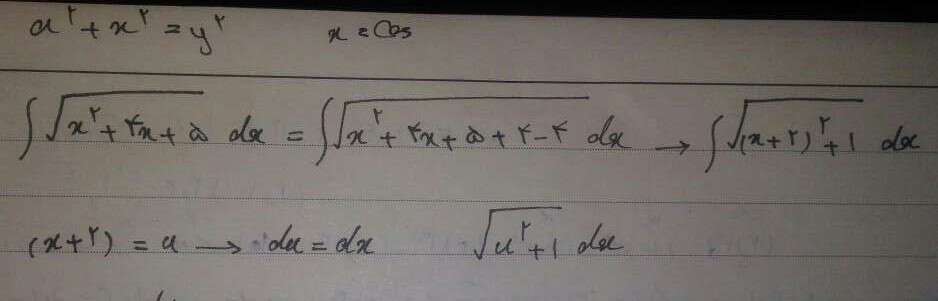 a^۲ + x^۲ = y^۲    x = Cos
∫√(x^۲ + ۴x + ۵) dx = ∫√(x^۲ + ۴x + ۵ + ۴ - ۴) dx → ∫√((x+۲)^۲ + ۱) dx
(x+۲) = u → du = dx    √(u^۲ + ۱) du